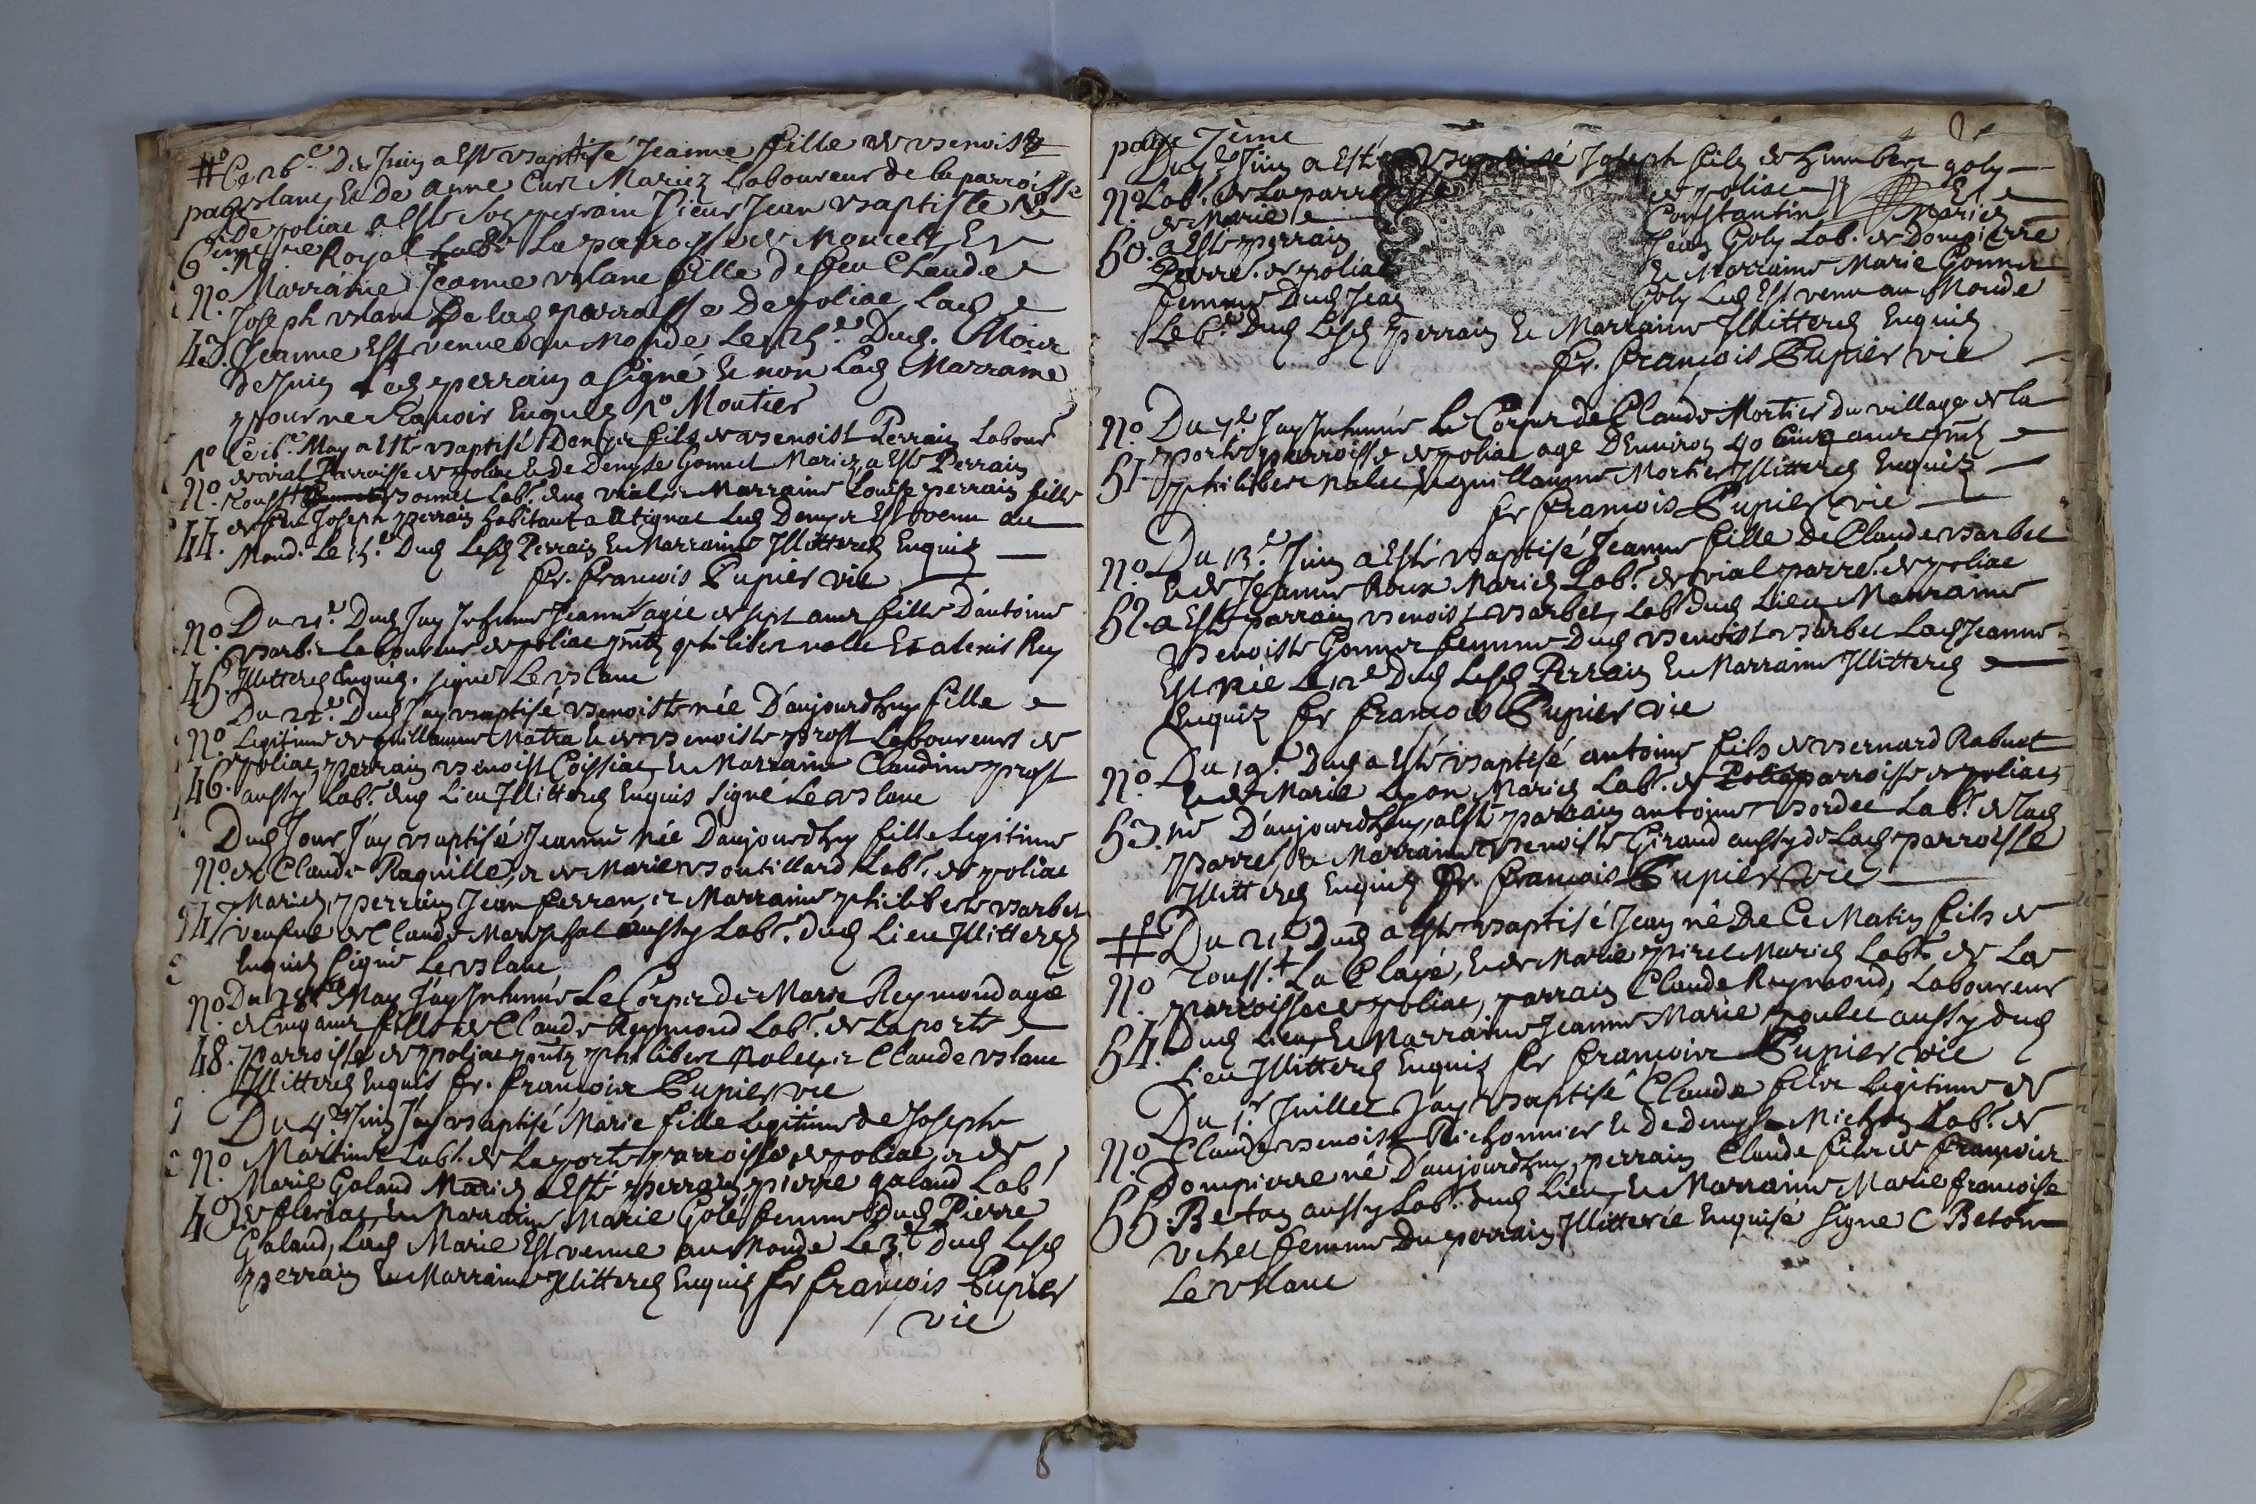 Ce 26e De Juin a Esté Baptisé Jeanne fille de Benoist
page Blanc, Et De anne Curt Mariez Laboureur de la parroisse
De poliac a Esté Son perrain Sieur Jean Baptiste
6eme Royal La parroisse de Moncet, Et
No. Marraine Jeanne Blanc fille De feu Claude
Joseph Blanc De lad parroisse De poliac, Lad
43. Jeanne Est venue au Monde Le Dud. Mois
De Juin Led perrain a Signé Et non Lad Marraine
pour ne Scavoir Enquise Moutier
Ce 16e May a Esté Baptisé Denys fils de Benoist Perrain Labour
No de vial Parroisse de poliac Et De Denyse Gonnet Mariez, a Esté Perrain
Touss.t Bonnet Lab.r dud vial, et Marraine Louise perrain fille
44. de feu Joseph perrain habitant a attignat Led Denys Est venu au
Monde Le 15e Dud Lesd Perrain Et Marraine Illitterez Enquis
fr. francois Pupier vic
No Du 21e Dud Jay Inhumé Jeanne agée de sept ans fille D'antoine
Barbet Laboureur de poliac pntz philibert nallet Et alexis Rey
45. Illitterez Enquis. signé Le Blanc
Du 22e Dud Jay Baptisé Benoiste née D'aujourdhuy fille
No Legitime de guillaume Matra Et de Benoiste prost Laboureurs de
poliac, perrain Benoist Coissiac, Et Marraine Claudine prost
46. aussy Lab.r dud Lieu Illitterez Enquis signé Le Blanc
Dud Jour J'ay Baptisé Jeanne Née D'aujourdhuy fille Legitime
No. de Claude Raquillet, et de Marie Boutillard Lab.r de poliac
Mariez, perrain Jean ferran, et Marraine philiberte Barbet
47 veufve de Claude Mareschal aussy Lab.r dud Lieu Illitterez
Enquis signé Le Blanc
No Du 28e May J'ay Inhumé Le Corps de Marie Reymond agée
de Cinq ans fille de Claude Reymond Lab.r de Laporte
48. parroisse de poliac pntz philibert Nalet, et Claude Blanc
Illitterez Enquis fr. francois Pupier vic
Du 4e Juin J'ay Baptisé Marie fille Legitime de Joseph
No Martinet Lab.r de Laporte parroisse de poliac, et de
Marie Galand Mariez a Esté perrain pierre galand Lab.r
49 de fleriat, Et Marraine Marie Golet femme Dud Pierre
Galand, Lad Marie Est venue au Monde Le 3e Dud Lesd
perrain Et Marraine Illitterez Enquis fr francois Pupier
vic
page 7eme
Dud Juin a Esté Baptisé Joseph fils de humbert goly
No Lab.r de La parroisse de poliac Et
de Marie Constantin Mariez
50. a Esté perrain Jean Goly Lab.r de Dompierre
Parre. de poliac Et Marraine Marie Gonnet
femme Dud Jean Goly Led Est venu au Monde
Le 6e Dud Lesd Perrain Et Marraine Illitterez Enquis
fr. francois Pupier vic
No. Du 7e. Jay Inhumé Le Corps de Claude Mortier Du village de la
porte parroisse de poliac agé D'Environ 40 Cinq ans pntz
51 philibert nalet, Et guillaume Mortier Illitterez Enquis
fr francois Pupier vic
No Du 13e Juin a Esté Baptisé Jeanne fille De Claude Barbet
Et de Jeanne Roux Mariez Lab.r de vial parre. de poliac
52. a Esté parrain Benoist Barbet, Lab.r dud Lieu Marraine
Benoiste Gonnet femme Dud Benoist Barbet Lad Jeanne
Est née Le 12e Dud Lesd Perrain Et Marraine Illitterez
Enquis fr francois Pupier vic
No Du 19e. Dud a Esté Baptisé antoine fils de Bernard Rabuet
Et de Marie Mariez Lab.r de parroisse de poliac
53. né D'aujourdhuy, a Esté parrain antoine Bordet Lab.r de lad
parre, Et Marraine Benoiste Giraud aussy de Lad parroisse
Illitterez Enquis fr. francois Pupier vic
Du 21e Dud a Esté Baptisé Jean né De Ce Matin fils de
No Touss.t La Claye, Et de Marie piret Mariez Lab.r de La
parroisse de poliac, parrain Claude Reymond, Laboureur
54. Dud Lieu, Et Marraine Jeanne Marie poulet aussy dud
Lieu Illitterez Enquis fr francois Pupier vic
Du 1er Juillet Jay Baptisé Claude fils Legitime de
No Claude Benoist Pichonnier Et De Denyse Michon Lab.r de
Dompierre né D'aujourdhuy, perrain Claude fils de francois
55. Beton aussy Lab.r dud Lieu, Et Marraine Marie francoise
vichet femme Du perrain Illitterée Enquise signé C Beton
Le Blanc